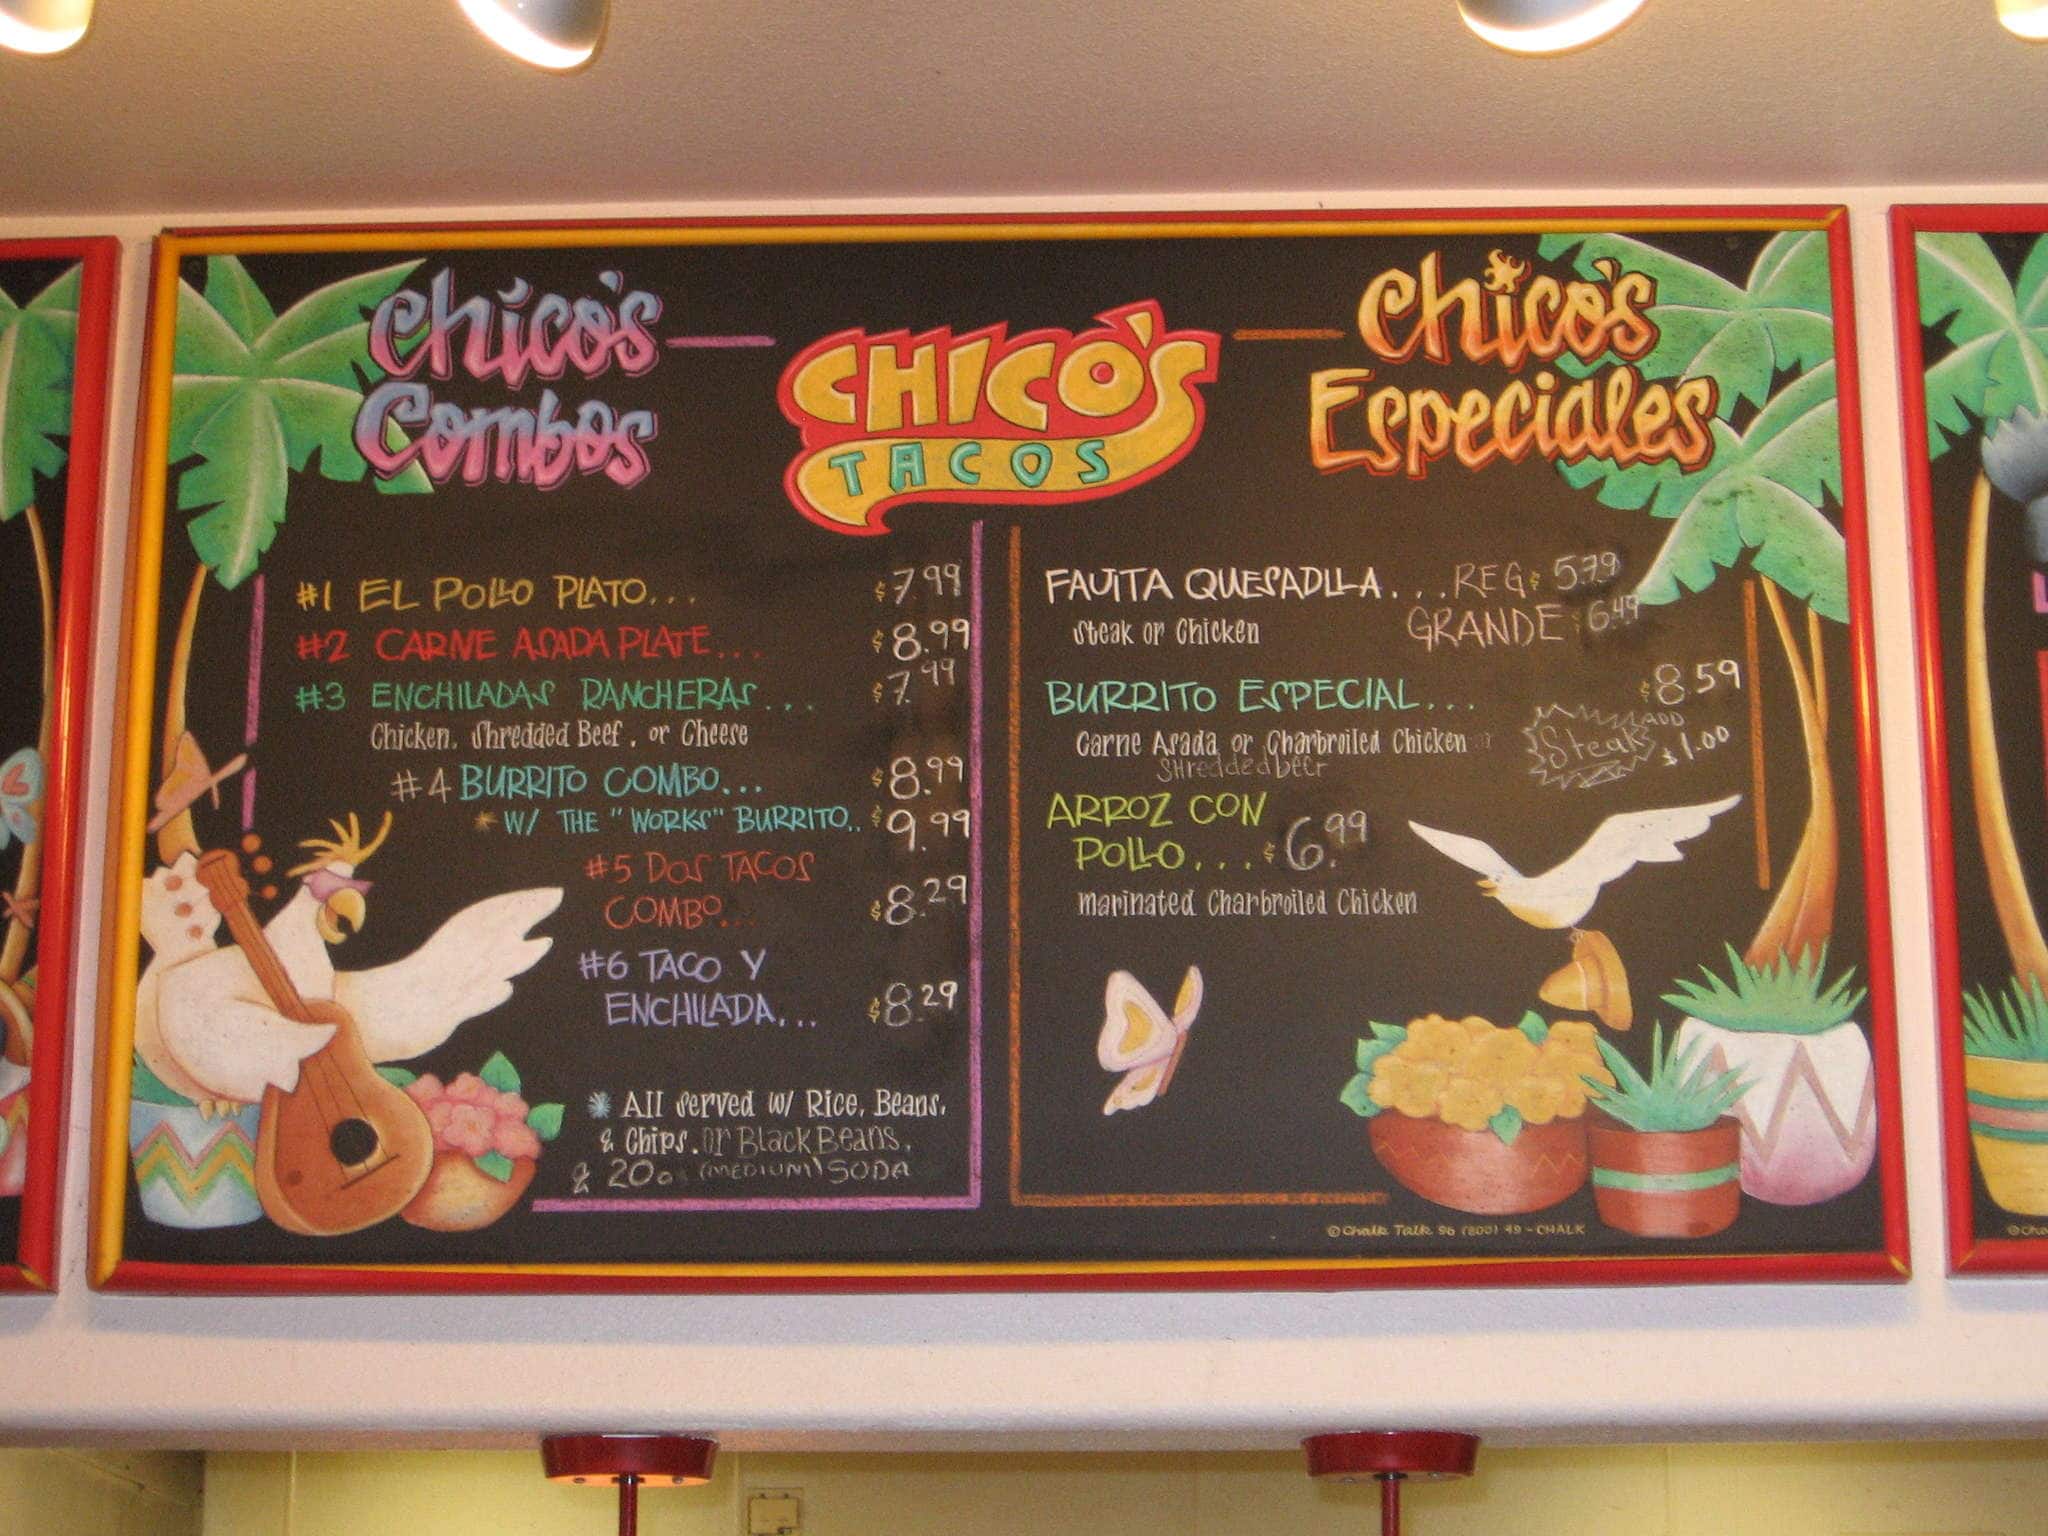 Chico's
Combos
CHICO'S
TACOS
Chico's
Especiales
#1 EL POLLO PLATO... $7.99
#2 CARNE ASADA PLATE... $8.99
#3 ENCHILADAS RANCHERAS... $7.99
Chicken, Shredded Beef, or Cheese
#4 BURRITO COMBO... $8.99
* W/ THE "WORKS" BURRITO.. $9.99
#5 DOS TACOS
COMBO... $8.29
#6 TACO Y
ENCHILADA... $8.29
* All served w/ Rice, Beans,
& Chips. or Black Beans,
& 20o (MEDIUM) SODA
FAJITA QUESADILLA... REG $5.79
Steak or Chicken GRANDE $6.49
BURRITO ESPECIAL... $8.59
Carne Asada or Charbroiled Chicken or
Shredded beef
Steak ADD
$1.00
ARROZ CON
POLLO... $6.99
marinated Charbroiled Chicken
© Chalk Talk 96 (800) 49-CHALK